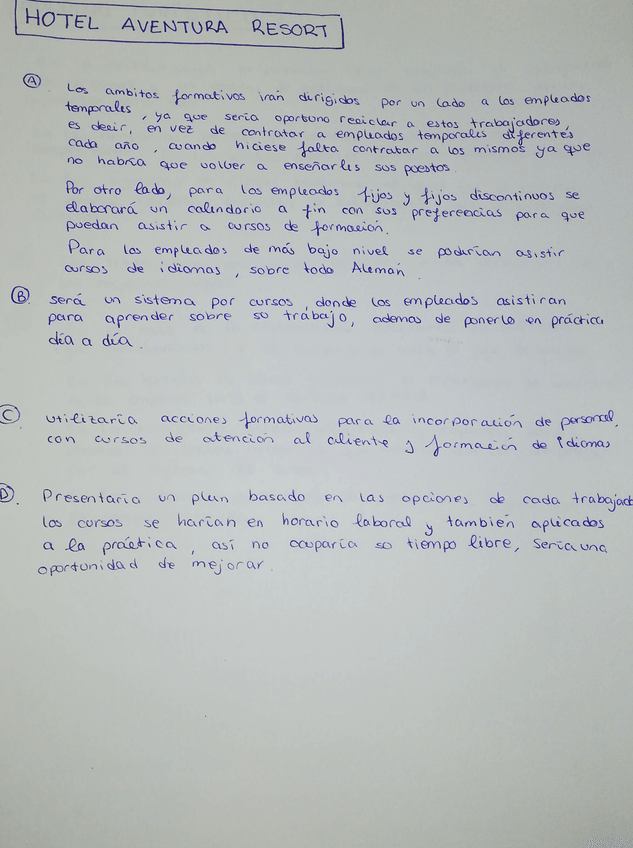 HOTEL AVENTURA RESORT
A Los ambitos formativos irán dirigidos por un lado a los empleados
temporales, ya que sería oportuno reciclar a estos trabajadores,
es decir, en vez de contratar a empleados temporales diferentes
cada año, cuando hiciese falta contratar a los mismos ya que
no habría que volver a enseñarles sus puestos.
Por otro lado, para los empleados fijos y fijos discontinuos se
elaborará un calendario a fin con sus preferencias para que
puedan asistir a cursos de formación.
Para los empleados de más bajo nivel se podrían asistir
cursos de idiomas, sobre todo Alemán.
B será un sistema por cursos, donde los empleados asistiran
para aprender sobre su trabajo, ademas de ponerlo en práctica
día a día.
C. utilizaría acciones formativas para la incorporación de personal,
con cursos de atención al cliente y formación de Idiomas
D. Presentaría un plan basado en las opciones de cada trabajad
los cursos se harían en horario laboral y también aplicados
a la práctica, así no ocuparía su tiempo libre, sería una
oportunidad de mejorar.